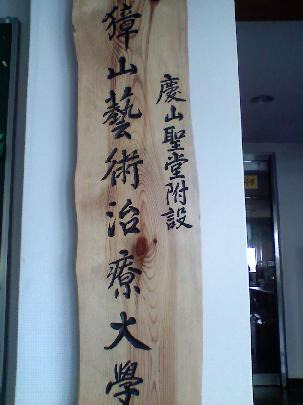 慶山聖堂附設
獐山藝術治療大學